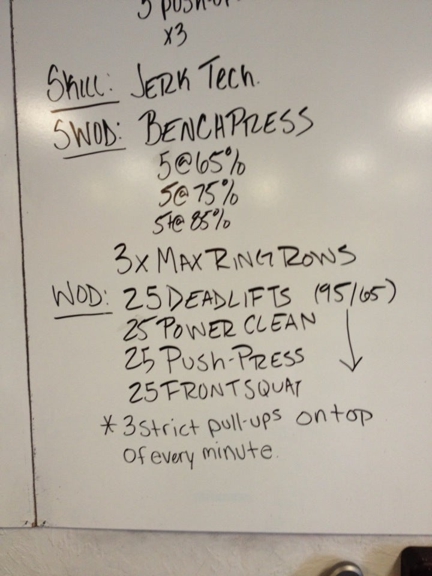 5 push-u
x3
Skill: Jerk Tech.
SWOD: BENCHPRESS
5@65%
5@75%
5+@85%
3x MAX RING ROWS
WOD: 25 DEADLIFTS (95/65)
25 POWER CLEAN
25 PUSH-PRESS
25 FRONT SQUAT
* 3 Strict pull-ups on top
of every minute.